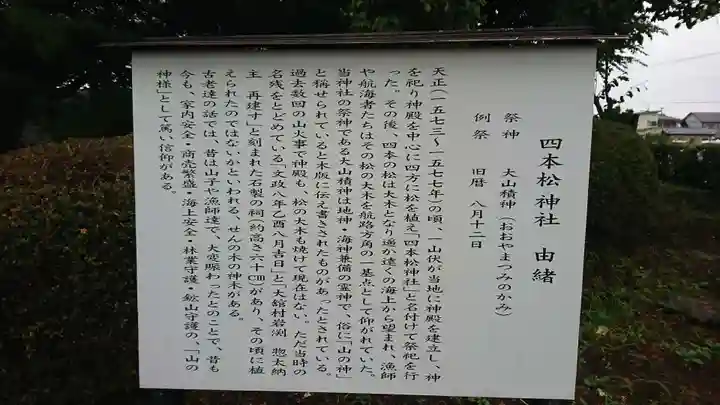 四本松神社 由緒
祭神 大山積神(おおやまつみのかみ)
例祭 旧暦 八月十二日
天正(一五七三~一五七七年)の頃、一山伏が当地に神殿を建立し、神
を祀り神殿を中心に四方に松を植え「四本松神社」と名付けて祭祀を行
った。その後、四本の松は大木となり遥か遠くの海上から望まれ、漁師
や航海者たちはその松の大木を航路方角の一基点として仰がれていた。
当神社の祭神である大山積神は地神・海神兼備の霊神で、俗に「山の神」
と称せられていると木版に伝え書きされたものがあったとされている。
過去数回の山火事で神殿も、松の大木も焼けて現在はない。ただ当時の
名残をとどめている「文政八年乙酉八月吉日」と「大舘村岩渕 惣太納
主 再建す」と刻まれた石製の祠(約高さ六十㎝)があり、その頃に植
えられたのではないかといわれる、せんの木の神木がある。
古老達の話では、昔は山子や漁師達で、大変賑わったとのことで、昔も
今も、家内安全・商売繁盛・海上安全・林業守護・鉱山守護の、「山の
神様」として篤い信仰がある。